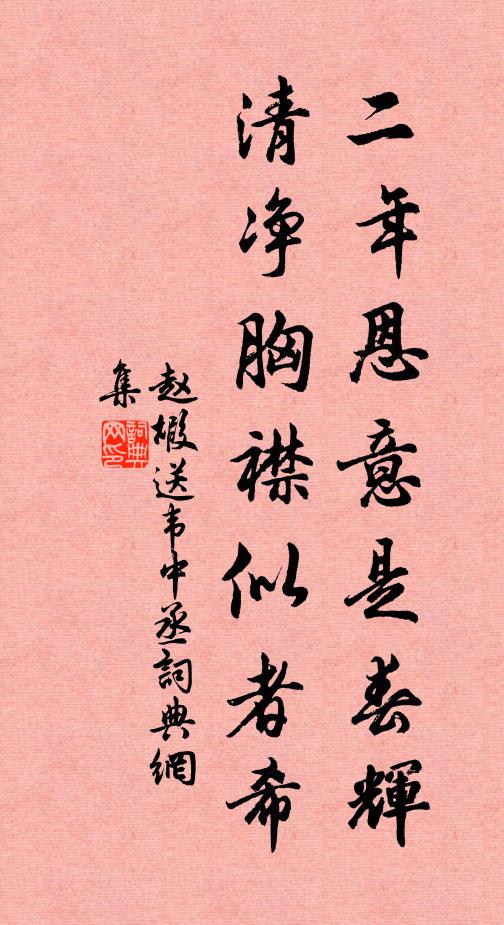 二年恩意是春輝
清净胸襟似者希
赵嘏送韦中丞詞典網
集
詞典网印